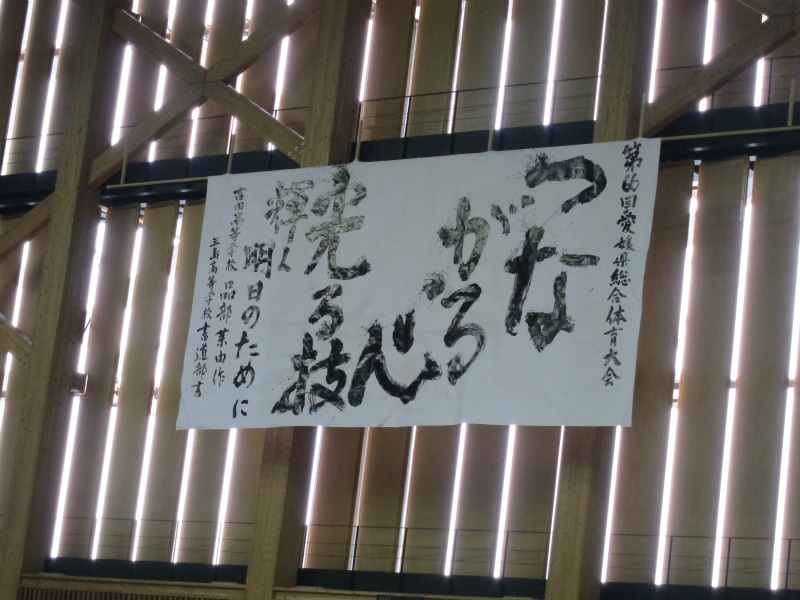 第66回愛媛県総合体育大会
つな
がる
心
光る技
輝く
明日のために
吉田高等学校 品部 茉由作
三島高等学校 書道部書